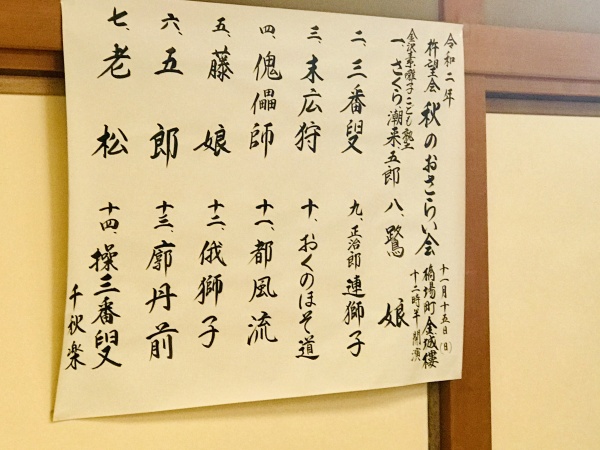 令和二年
杵望会 秋のおさらい会
十一月十五日(日)
橋場町 金城樓
十二時半開演
金沢素囃子こども塾
一、さくら、潮来、五郎
二、三番叟
三、末広狩
四、傀儡師
五、藤娘
六、五郎
七、老松
八、鷺娘
九、正治郎連獅子
十、おくのほそ道
十一、都風流
十二、俄獅子
十三、廓丹前
十四、操三番叟
千秋楽